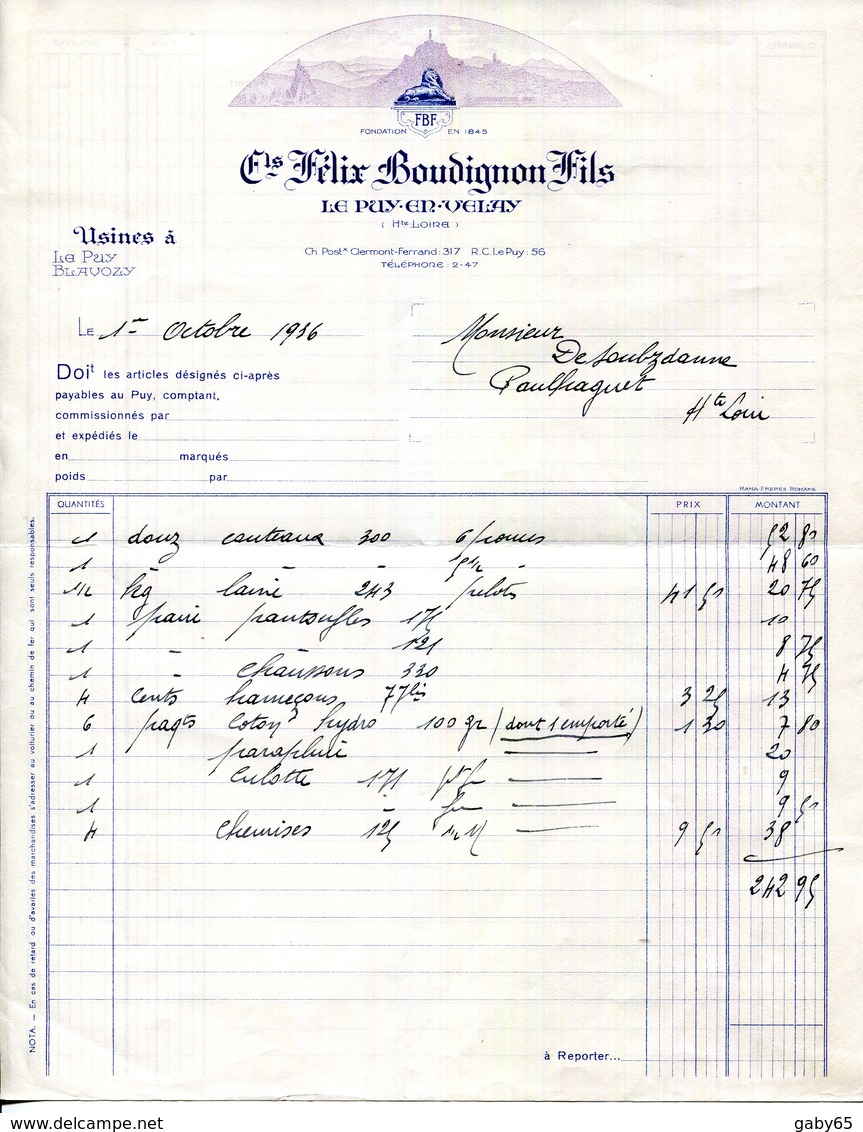 FBF
FONDATION EN 1845
Ets Félix Boudignon Fils
LE PUY-EN-VELAY
( Hte LOIRE )
Usines à
LE PUY
BLAVOZY
Ch. Postx Clermont-Ferrand : 317 R.C. Le Puy : 56
TÉLÉPHONE : 2-47
LE 1er Octobre 1936
Monsieur
De Soubzdanne
Paulhaguet
Hte Loire
Doit les articles désignés ci-après
payables au Puy, comptant,
commissionnés par
et expédiés le
en marqués
poids par
RAMA FRÈRES ROMANS
QUANTITÉS PRIX MONTANT
1 douz couteaux 300 6 pouces 52 80
1 - - 5 1/2 48 60
1/2 kg laine 243 pelots 41 50 20 75
1 paire pantoufles 175 10
1 - 121 8 75
1 - Chaussons 330 4 75
4 cents hameçons 77 bis 3 25 13
6 paqts Coton hydro 100 gr (dont 1 emporté) 1 30 7 80
1 parapluie 20
1 Culotte 171 9
1 - 9 50
4 Chemises 125 9 50 38
242 95
à Reporter...
NOTA. — En cas de retard ou d'avaries des marchandises s'adresser au voiturier ou au chemin de fer qui sont seuls responsables.
gaby65